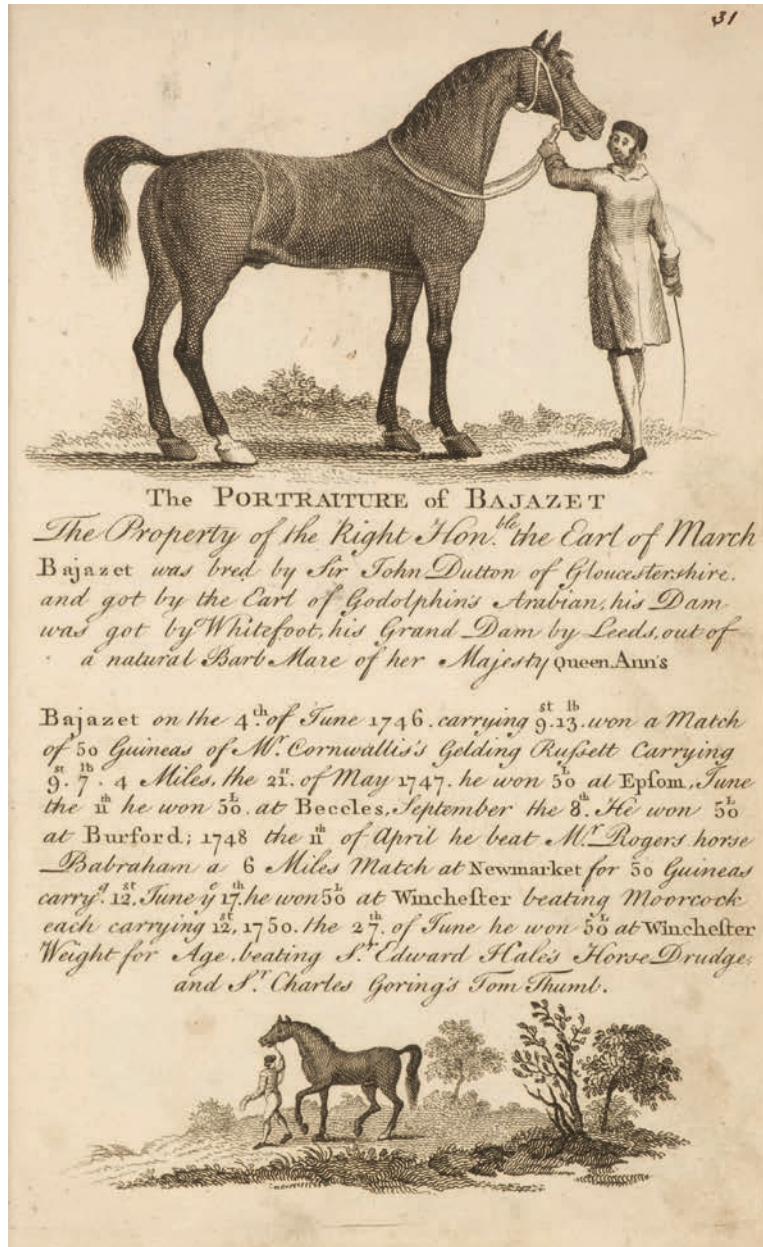 31
The PORTRAITURE of BAJAZET
The Property of the Right Hon.ble the Earl of March
Bajazet was bred by Sir John Dutton of Gloucestershire.
and got by the Earl of Godolphin's Arabian, his Dam
was got by Whitefoot, his Grand Dam by Leeds, out of
a natural Barb Mare of her Majesty Queen Ann's
Bajazet on the 4th. of June 1746. carrying 9st. 13lb. won a Match
of 50 Guineas of Mr. Cornwallis's Gelding Ruſsett Carrying
9st. 7lb. 4 Miles, the 21st. of May 1747. he won 50L at Epſom, June
the 11th he won 50L. at Beccles, September the 8th. He won 50L
at Burford; 1748 the 11th of April he beat Mr. Rogers horse
Babraham a 6 Miles Match at Newmarket for 50 Guineas
carryg. 12st. June ye 17th. he won 50L at Wincheſter beating Moorcock
each carrying 12st, 1750. the 27th. of June he won 50L at Wincheſter
Weight for Age, beating Sr. Edward Hale's Horse Drudge,
and Sr. Charles Goring's Tom Thumb.